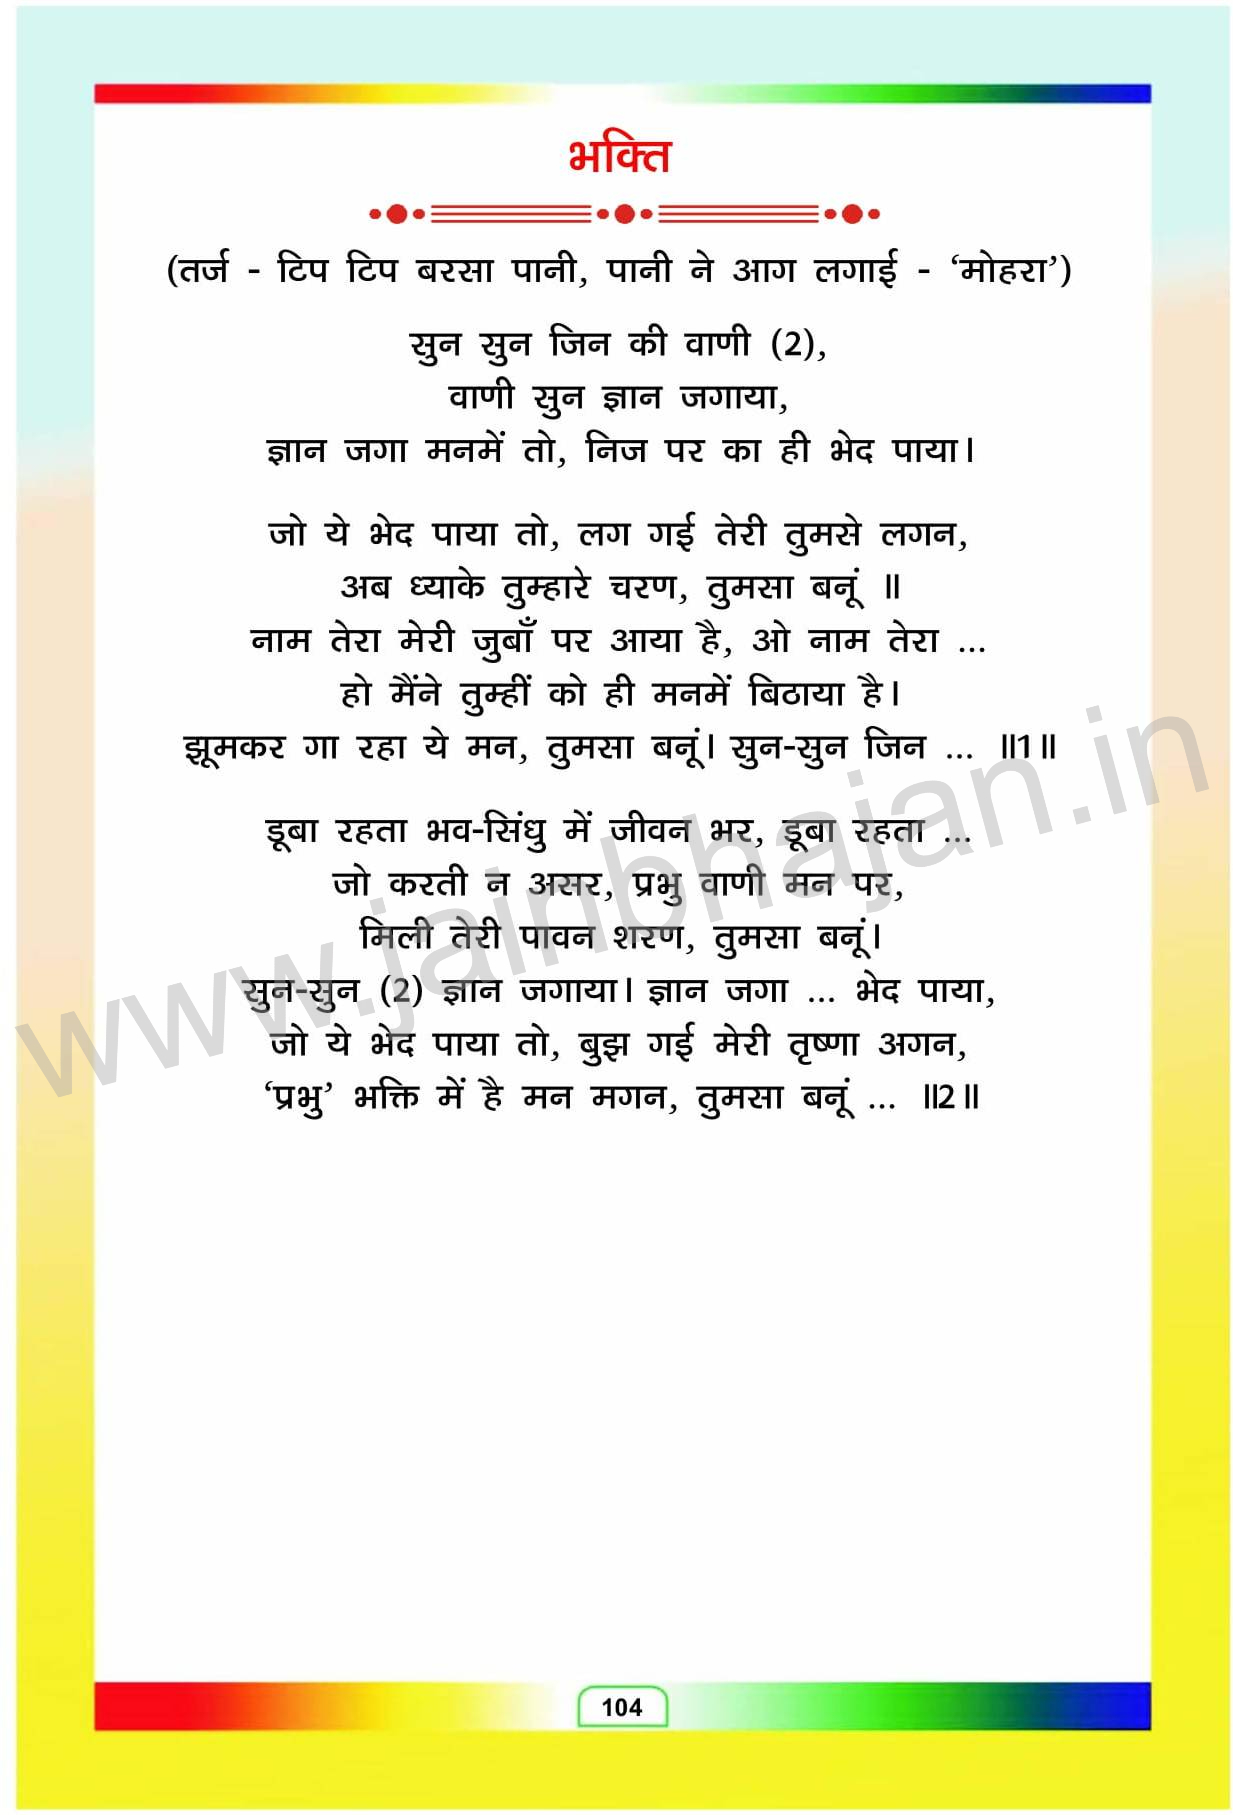 भक्ति
(तर्ज - टिप टिप बरसा पानी, पानी ने आग लगाई - ‘मोहरा’)
सुन सुन जिन की वाणी (2),
वाणी सुन ज्ञान जगाया,
ज्ञान जगा मनमें तो, निज पर का ही भेद पाया।
जो ये भेद पाया तो, लग गई तेरी तुमसे लगन,
अब ध्याके तुम्हारे चरण, तुमसा बनूं ॥
नाम तेरा मेरी जुबाँ पर आया है, ओ नाम तेरा ...
हो मैंने तुम्हीं को ही मनमें बिठाया है।
झूमकर गा रहा ये मन, तुमसा बनूं। सुन-सुन जिन ... ॥1॥
डूबा रहता भव-सिंधु में जीवन भर, डूबा रहता ...
जो करती न असर, प्रभु वाणी मन पर,
मिली तेरी पावन शरण, तुमसा बनूं।
सुन-सुन (2) ज्ञान जगाया। ज्ञान जगा ... भेद पाया,
जो ये भेद पाया तो, बुझ गई मेरी तृष्णा अगन,
‘प्रभु’ भक्ति में है मन मगन, तुमसा बनूं ... ॥2॥
www.jainbhajan.in
104